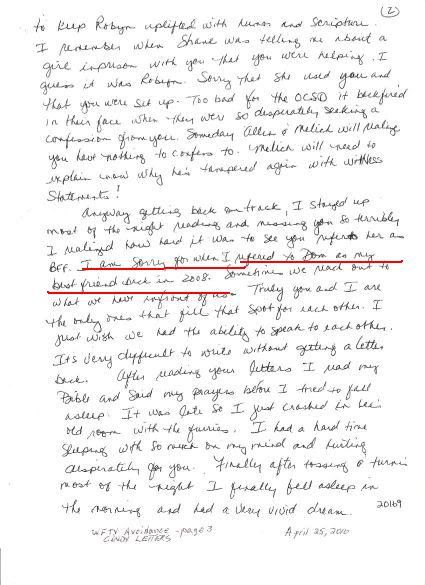 (2)
to keep Robyn uplifted with humor and Scripture.
I remember when Shane was telling me about a
girl inprison with you that you were helping. I
guess it was Robyn. Sorry that she used you and
that you were set up. Too bad for the OCSD it backfired
in their face when they were so desperately seeking a
confession from you. Someday Allen & Melich will realize
you have nothing to confess to. Melich will need to
explain know why he's tampered again with witness
Statements!
Anyway getting back on track, I stayed up
most of the night reading and missing you so terribly
I realized how hard it was to see you refer to her as
BFF. I am sorry for when I refered to Dom as my
best friend back in 2008. Sometimes we reach out to
what we have infront of us. Truly you and I are
the only ones that fill that spot for each other. I
just wish we had the ability to speak to each other.
Its very difficult to write without getting a letter
back. After reading your letters I read my
Bible and said my prayers before I tried to fall
asleep. It was late so I just crashed in
old room with the furries. I had a hard time
sleeping with so much on my mind and hurting
desperately for you. Finally after tossing & turning
most of the night I finally fell asleep in
the morning and had a very vivid dream.
20169
WFTV Avoidance - page 3
CINDY LETTERS
April 25, 2010